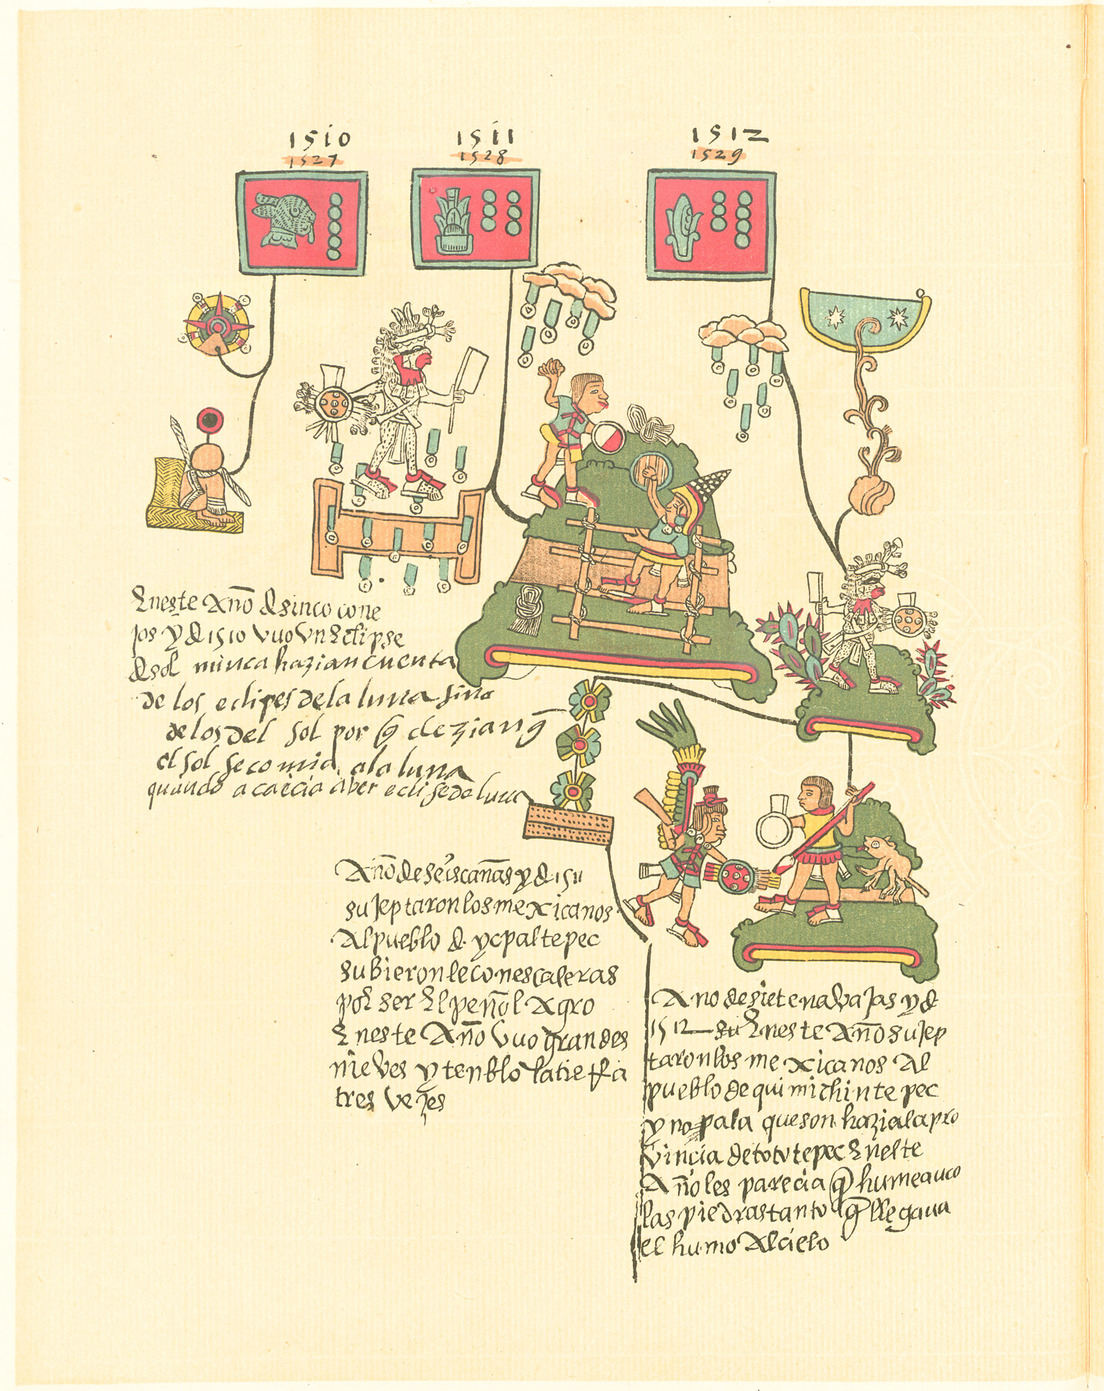 1510
1527
1511
1528
1512
1529
Eneste Año d sinco cone
jos y d 1510 vuo vn Eclipse
d sol nunca hazian cuenta
de los eclipes de la luna sino
de los del sol por q̃ dezian q̃
el sol se comia a la luna
quando acaecia aber eclise de luna
Año de seis cañas y d 1511
sujeptaron los mexicanos
Al pueblo d ycpaltepec
subieronle con escaleras
por ser El peñol Agro
Eneste Año vuo grandes
nieves y tenblo la tierra
tres vezes
Ano de siete navajas y d
1512 Eneste Año sujep
taron los mexicanos Al
pueblo de quimichintepec
y nopala que son hazia la pro
vincia de tototepec Eneste
Año les parecia q̃ humeauā
las piedras tanto q̃ llegaua
el humo Al cielo